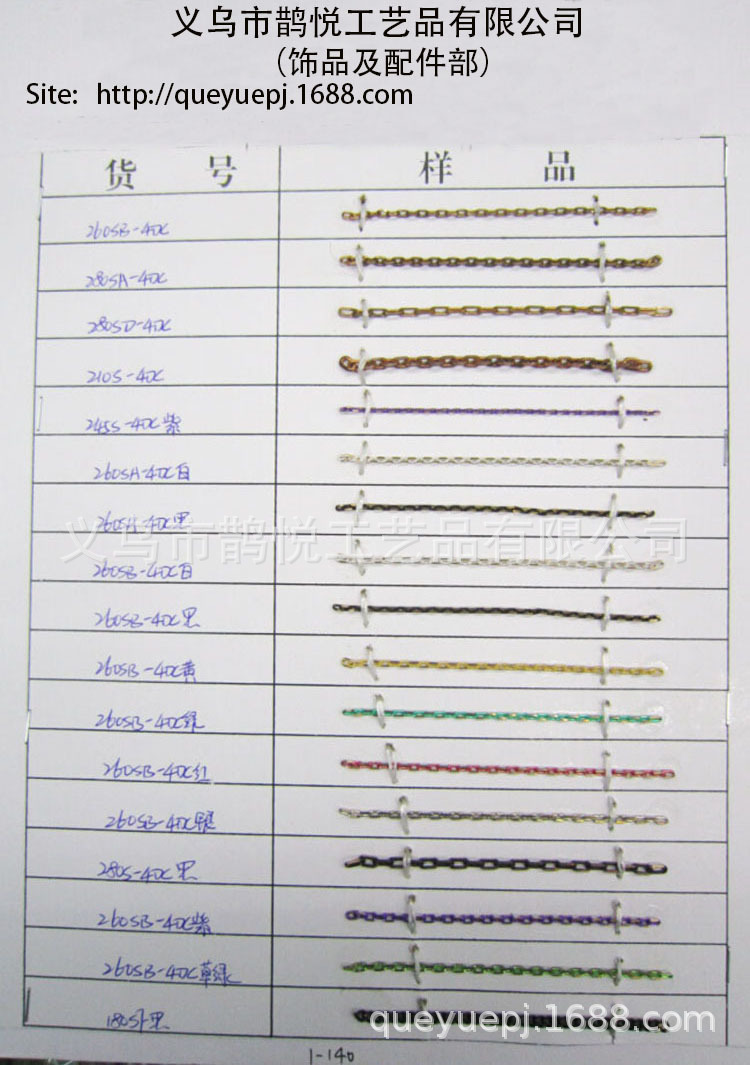 义乌市鹊悦工艺品有限公司
(饰品及配件部)
Site: http://queyuepj.1688.com
货 号 样 品
260SB-4DC
280SA-4DC
280SD-4DC
210S-4DC
245S-4DC紫
260SA-4DC白
260SA-4DC黑
义乌市鹊悦工艺品有限公司
260SB-4DC白
260SB-4DC黑
260SB-4DC黄
260SB-4DC绿
260SB-4DC红
260SB-4DC银
280S-4DC黑
260SB-4DC紫
260SB-4DC草绿
queyuepj.1688.com
1-140